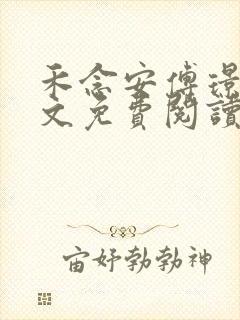 禾念安傅璟
文免費閱讀
宙好勃勃神